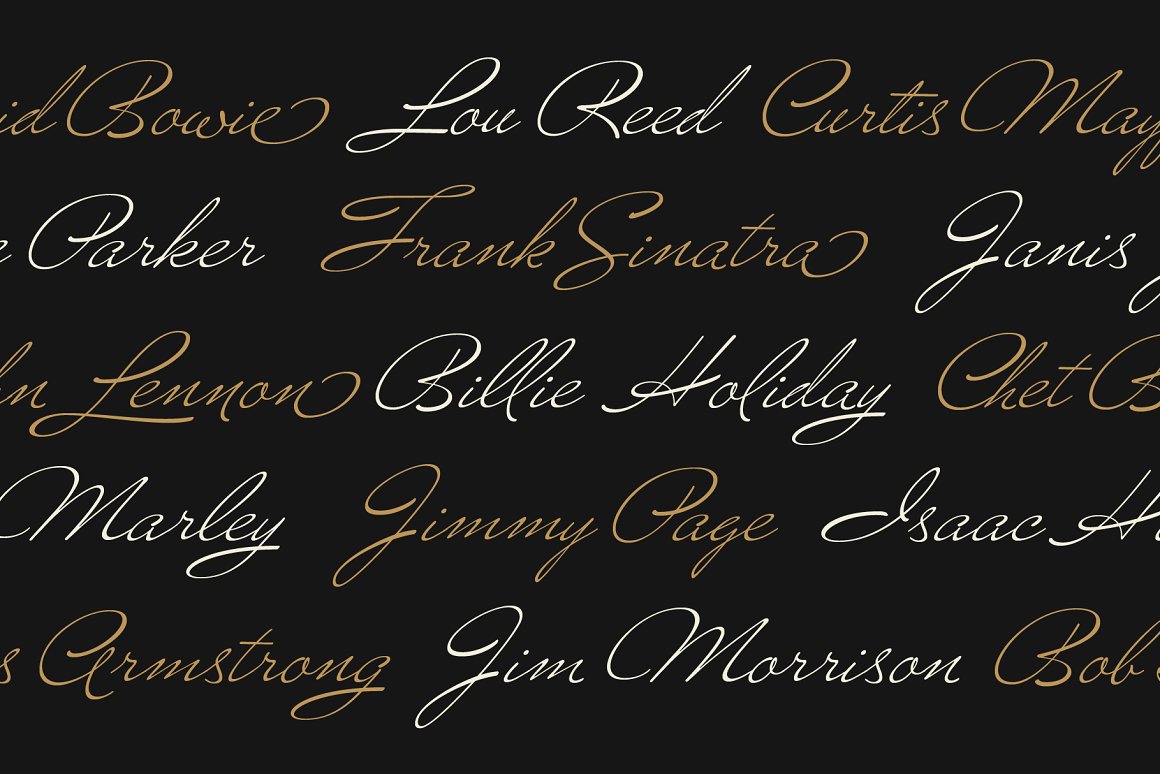 id Bowie Lou Reed Curtis May
e Parker Frank Sinatra Janis J
hn Lennon Billie Holiday Chet B
Marley Jimmy Page Isaac H
s Armstrong Jim Morrison Bob